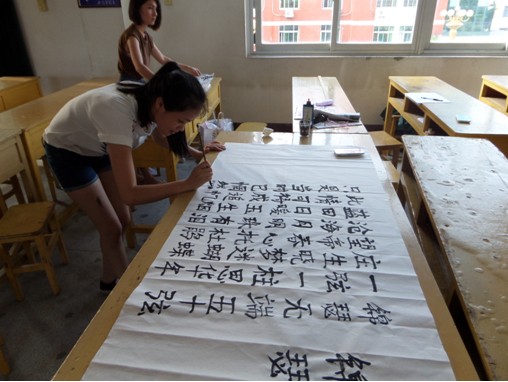 锦瑟
锦瑟无端五十弦
一弦一柱思华年
庄生晓梦迷蝴蝶
望帝春心托杜鹃
沧海月明珠有泪
蓝田日暖玉生烟
此情可待成追忆
只是当时已惘然